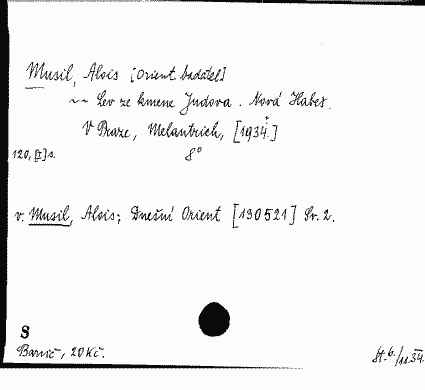 Musil, Alois [Orient. badatel]
~~ Lev ze kmene Judova. Nová Habeš.
V Praze, Melantrich, [1934.]
120, [I] s. 8°
v. Musil, Alois; Dnešní Orient [130521] Sv. 2.
8
20 Kč.